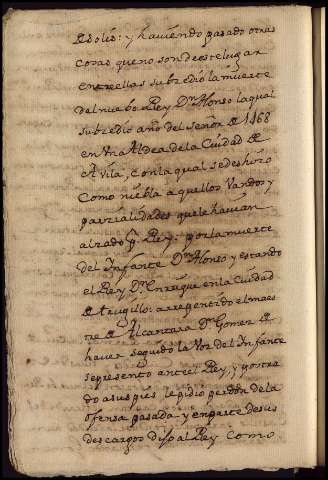 Solis: y haviendo pasado otras
cosas que no son de este lugar
entre ellas subzedio la muerte
del nuebo Rey Dn Alonso la qual
subzedio año del señor de 1468
en una Aldea de la Ciudad de
Avila, con la qual se deshizo
como niebla aquellos Vandos y
parzialidades que le havian
alzado pr Rey: por la muerte
del Infante Dn Alonso y estando
el Rey Dn Enrrique en la Ciudad
de Trugillo: arrepentido el maes
tre de Alcantara Dn Gomez de
haver seguido la Voz del Infante
se presento ante el Rey, y postra
do a sus pies le pidio perdon de la
ofensa pasada y en parte de sus
descargos dijo al Rey como